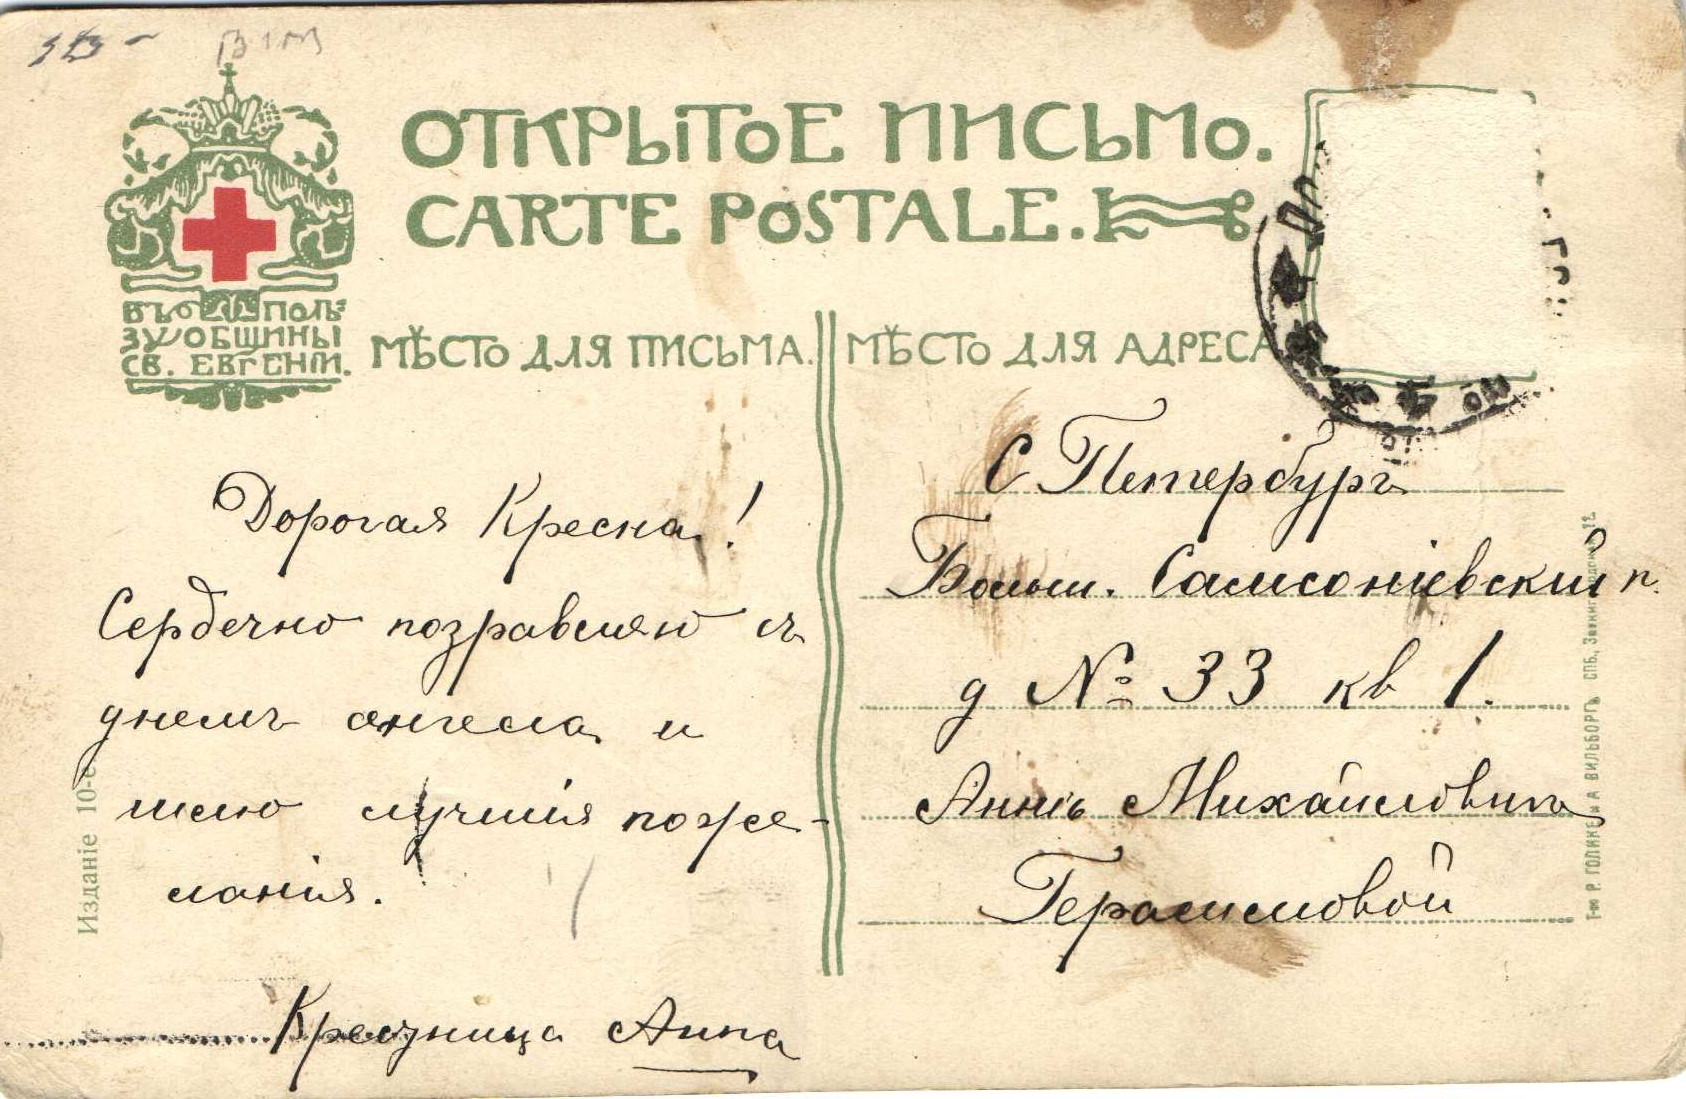 ОТКРЫТОЕ ПИСЬМО.
CARTE POSTALE.
ВЪ ПОЛЬ-
ЗУ ОБЩИНЫ
СВ. ЕВГЕНІИ.
МѢСТО ДЛЯ ПИСЬМА.
МѢСТО ДЛЯ АДРЕСА
Дорогая Кресна!
Сердечно поздравляю съ
днемъ ангела и
шлю лучшія поже-
ланія.
Крестница Анна
С Петербургъ
Больш. Сампсоніевскій п.
д № 33 кв 1.
Аннѣ Михайловнѣ
Герасимовой
Изданіе 10-е
Т-во Р. ГОЛИКЕ и А. ВИЛЬБОРГЪ. СПБ., Звенигородская, 11.